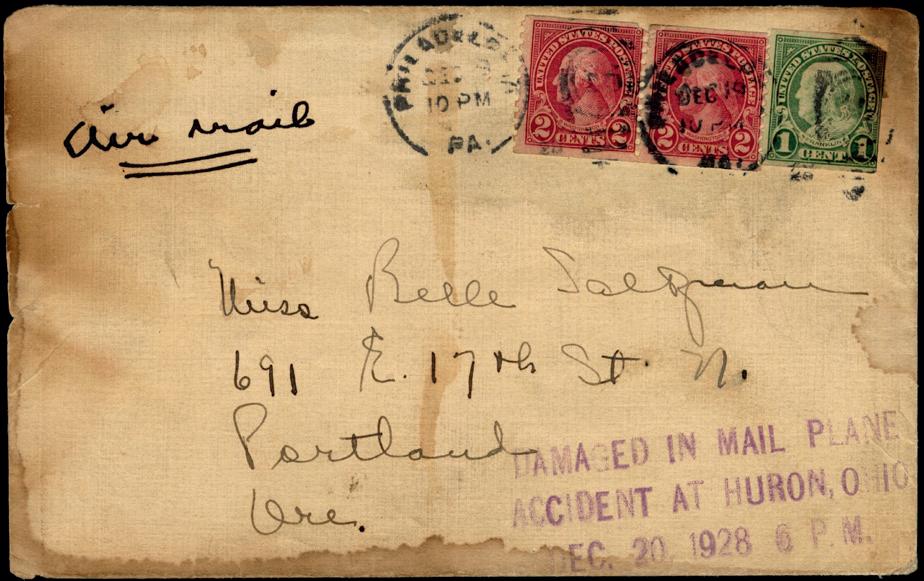 PHILADELPHIA
DEC 19
10 PM
PA.
UNITED STATES POSTAGE
2 CENTS 2
UNITED STATES POSTAGE
2 CENTS 2
UNITED STATES POSTAGE
FRANKLIN
1 CENT 1
DEC 19
10 PM
PA.
Air mail
Miss Belle Saltzman
691 E. 17th St. N.
Portland
Ore.
DAMAGED IN MAIL PLANE
ACCIDENT AT HURON, OHIO
DEC. 20, 1928 6 P.M.